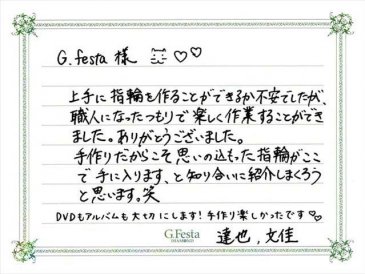 G.festa 様 ♡♡
上手に指輪を作ることができるか不安でしたが、
職人になったつもりで楽しく作業することができ
ました。ありがとうございました。
手作りだからこそ思いの込もった指輪がここ
で手に入ります、と知り合いに紹介しまくろう
と思います。笑
DVDもアルバムも大切にします!手作り楽しかったです♡♡
G.Festa
DIAMOND
達也,文佳